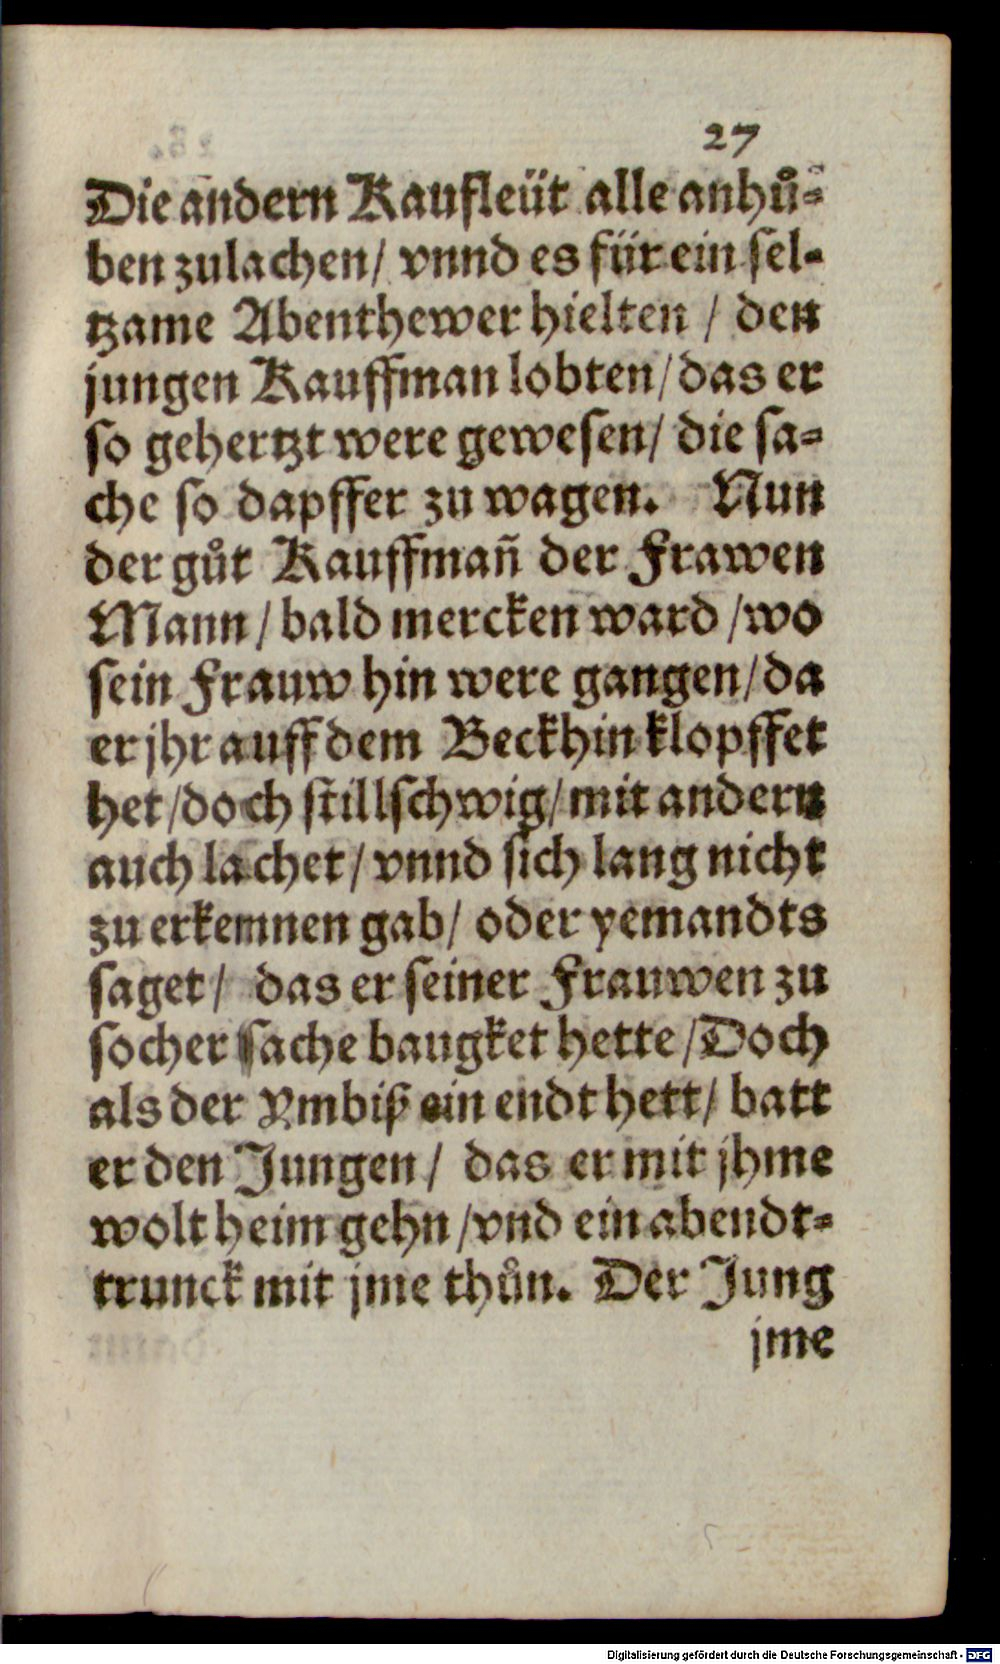 27
Die andern Kaufleüt alle anhů-
ben zulachen/ vnnd es für ein sel-
tzame Abenthewer hielten / den
jungen Kauffman lobten/das er
so gehertzt were gewesen/ die sa-
che so dapffer zu wagen. Nun
der gůt Kauffmañ der Frawen
Mann/bald mercken ward/wo
sein Frauw hin were gangen/da
er jhr auff dem Beckhin klopffet
het/doch stillschwig/mit andern
auch lachet/vnnd sich lang nicht
zu erkemnen gab/ oder yemandts
saget/ das er seiner Frauwen zu
socher sache baugket hette/Doch
als der Ymbiß ein endt hett/ batt
er den Jungen/ das er mit jhme
wolt heim gehn/vnd ein abendt-
trunck mit jme thůn. Der Jung
jme
Digitalisierung gefördert durch die Deutsche Forschungsgemeinschaft - DFG